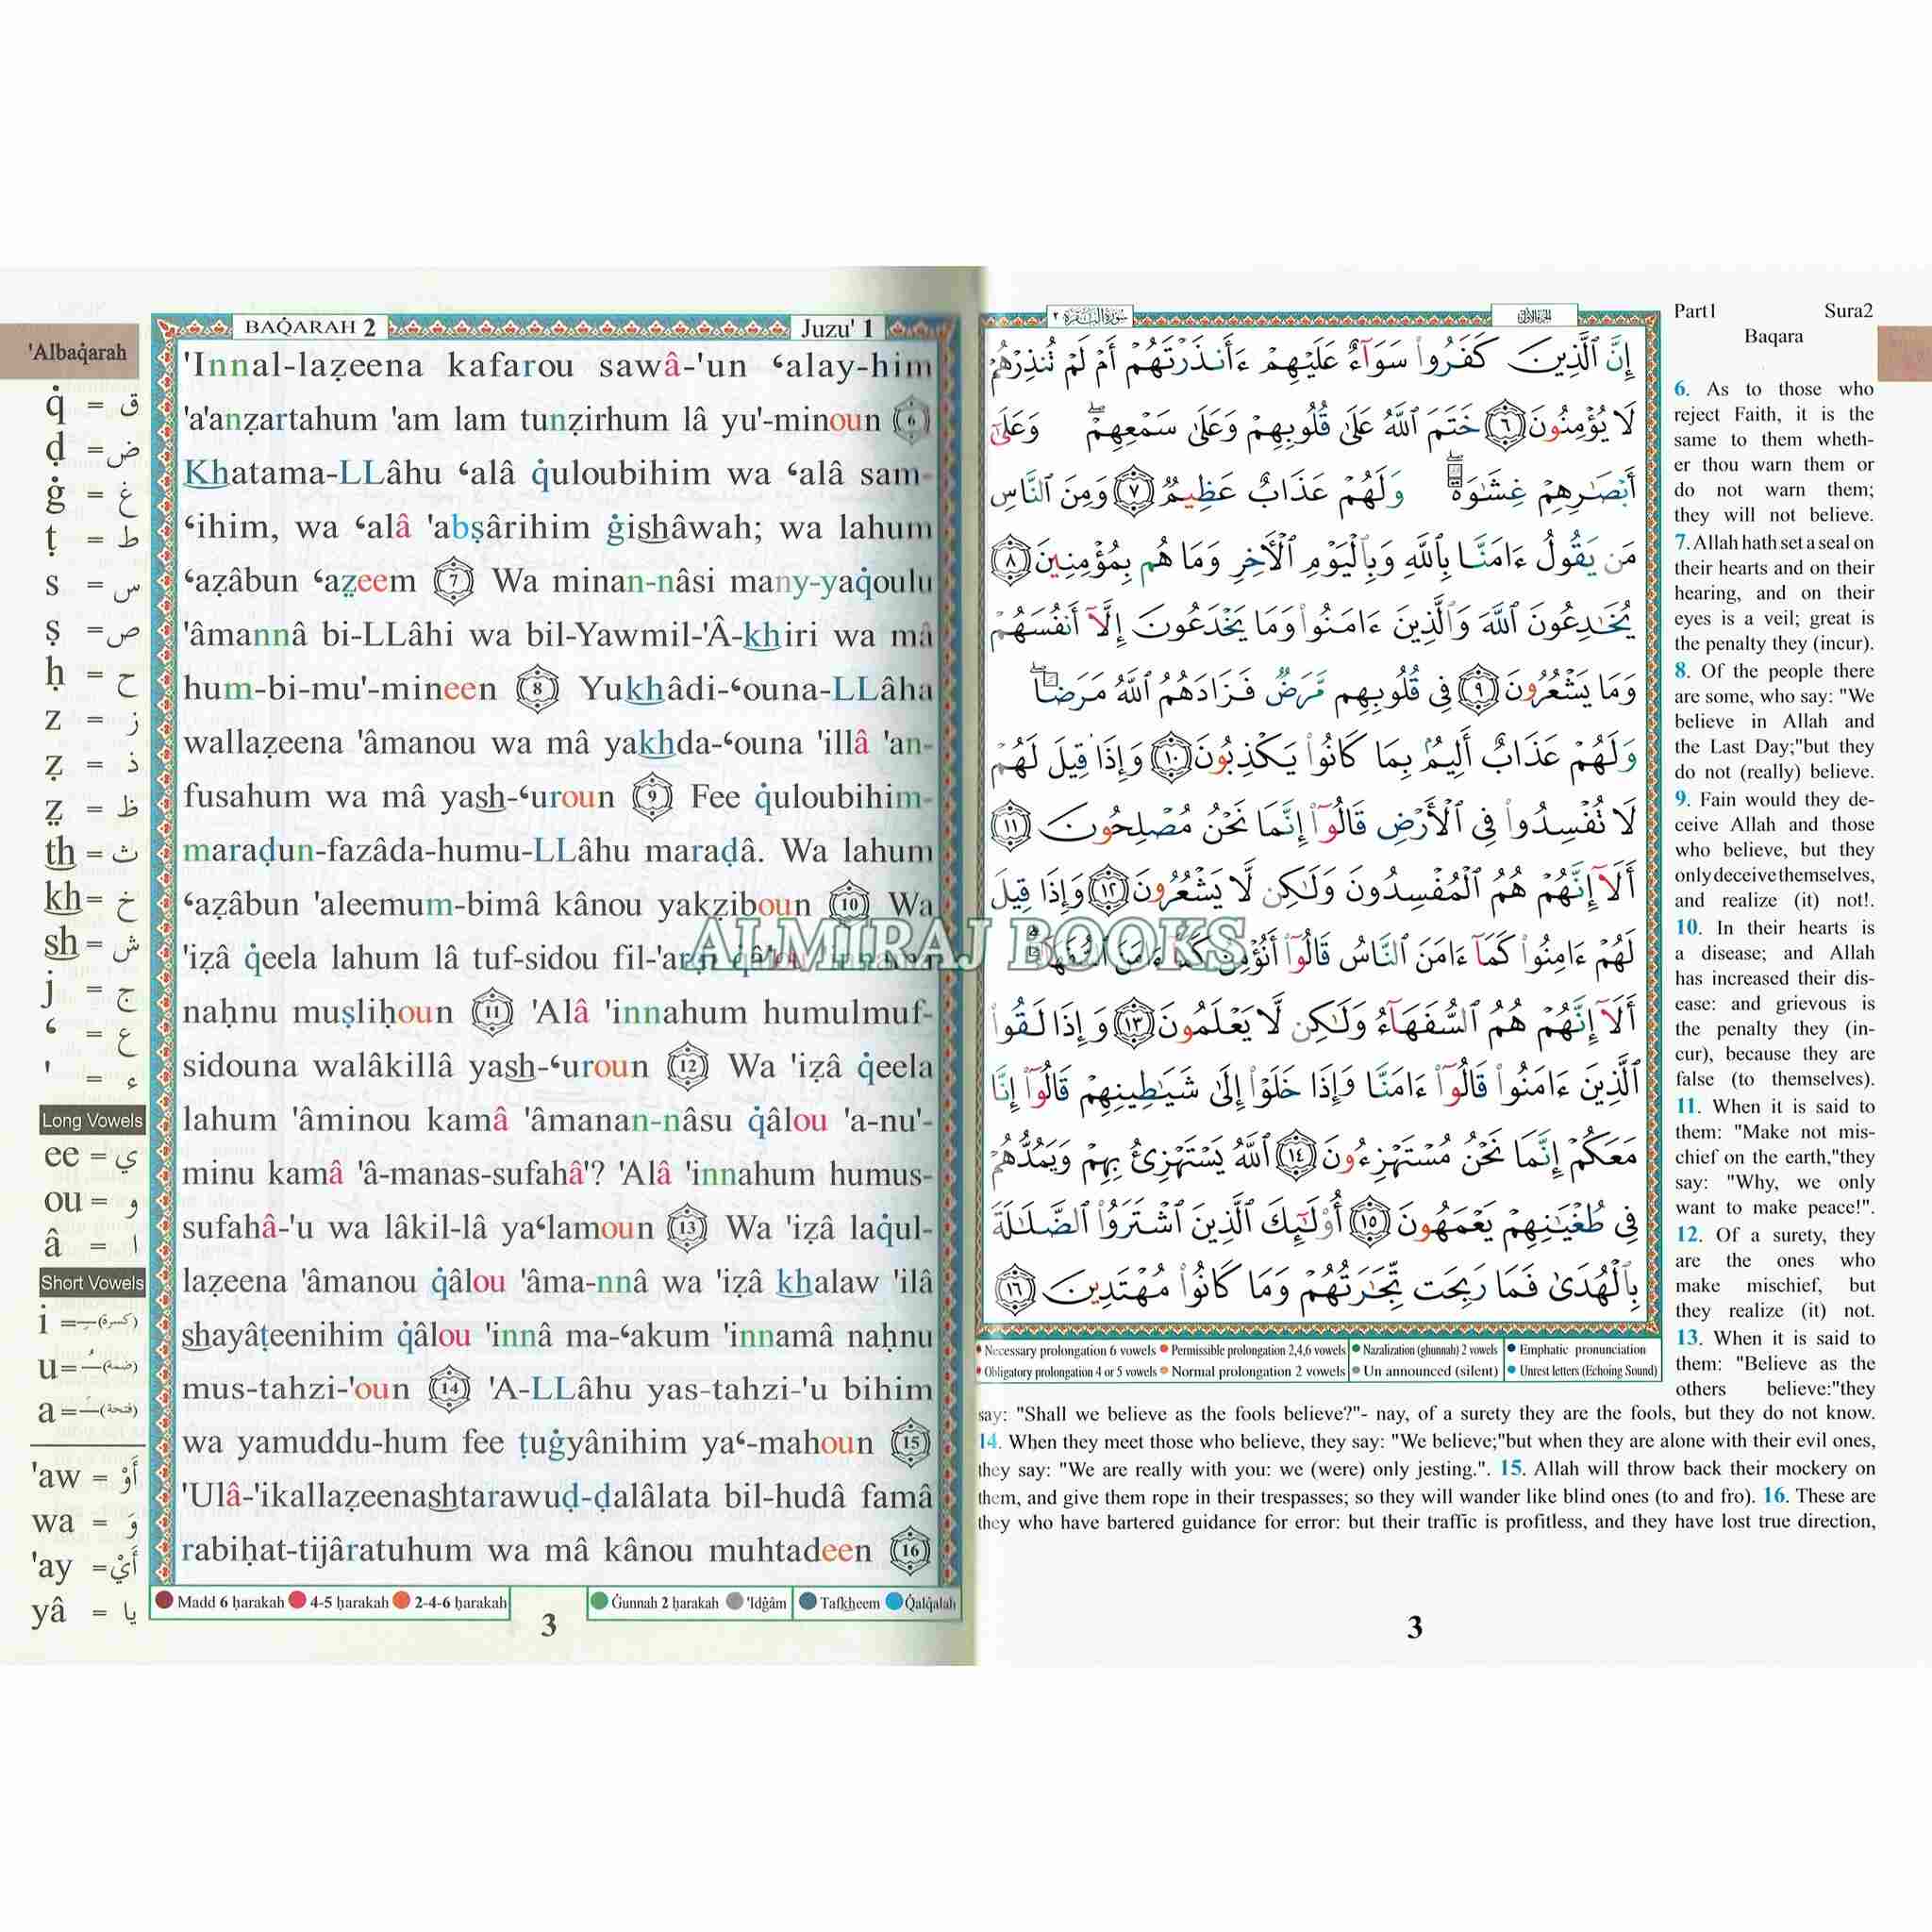 'Albaq̇arah
q̇ = ق
ḍ = ض
ġ = غ
ṭ = ط
s = س
ṣ = ص
ḥ = ح
z = ز
ẓ = ذ
ẓ̤ = ظ
th = ث
kh = خ
sh = ش
j = ج
ʻ = ع
' = ء
Long Vowels
ee = ي
ou = و
â = ا
Short Vowels
i = (كسرة)
u = (ضمة)
a = (فتحة)
'aw = أَوْ
wa = وَ
'ay = أَيْ
yâ = يا
BAQ̇ARAH 2 Juzu' 1
'Innal-laẓeena kafarou sawâ-'un ʻalay-him
'a'anẓartahum 'am lam tunẓirhum lâ yu'-minoun 6
Khatama-LLâhu ʻalâ q̇uloubihim wa ʻalâ sam-
ʻihim, wa ʻalâ 'abṣârihim ġishâwah; wa lahum
ʻaẓâbun ʻaẓ̤eem 7 Wa minan-nâsi many-yaq̇oulu
'âmannâ bi-LLâhi wa bil-Yawmil-'Â-khiri wa mâ
hum-bi-mu'-mineen 8 Yukhâdi-ʻouna-LLâha
wallaẓeena 'âmanou wa mâ yakhda-ʻouna 'illâ 'an-
fusahum wa mâ yash-ʻuroun 9 Fee q̇uloubihim-
maraḍun-fazâda-humu-LLâhu maraḍâ. Wa lahum
ʻaẓâbun 'aleemum-bimâ kânou yakẓiboun 10 Wa
'iẓâ q̇eela lahum lâ tuf-sidou fil-'arḍi q̇âlou 'innamâ
naḥnu muṣliḥoun 11 'Alâ 'innahum humulmuf-
sidouna walâkillâ yash-ʻuroun 12 Wa 'iẓâ q̇eela
lahum 'âminou kamâ 'âmanan-nâsu q̇âlou 'a-nu'-
minu kamâ 'â-manas-sufahâ'? 'Alâ 'innahum humus-
sufahâ-'u wa lâkil-lâ yaʻlamoun 13 Wa 'iẓâ laq̇ul-
laẓeena 'âmanou q̇âlou 'âma-nnâ wa 'iẓâ khalaw 'ilâ
shayâṭeenihim q̇âlou 'innâ ma-ʻakum 'innamâ naḥnu
mus-tahzi-'oun 14 'A-LLâhu yas-tahzi-'u bihim
wa yamuddu-hum fee ṭuġyânihim yaʻ-mahoun 15
'Ulâ-'ikallaẓeenashtarawuḍ-ḍalâlata bil-hudâ famâ
rabiḥat-tijâratuhum wa mâ kânou muhtadeen 16
Madd 6 ḥarakah 4-5 ḥarakah 2-4-6 ḥarakah Ġunnah 2 ḥarakah 'Idġâm Tafkheem Q̇alq̇alah
3
سُورَةُ البَقَرَةِ ٢ الجزء الأول
إِنَّ ٱلَّذِينَ كَفَرُوا۟ سَوَآءٌ عَلَيْهِمْ ءَأَنذَرْتَهُمْ أَمْ لَمْ تُنذِرْهُمْ
لَا يُؤْمِنُونَ ٦ خَتَمَ ٱللَّهُ عَلَىٰ قُلُوبِهِمْ وَعَلَىٰ سَمْعِهِمْ ۖ وَعَلَىٰٓ
أَبْصَـٰرِهِمْ غِشَـٰوَةٌ ۖ وَلَهُمْ عَذَابٌ عَظِيمٌ ٧ وَمِنَ ٱلنَّاسِ
مَن يَقُولُ ءَامَنَّا بِٱللَّهِ وَبِٱلْيَوْمِ ٱلْـَٔاخِرِ وَمَا هُم بِمُؤْمِنِينَ ٨
يُخَـٰدِعُونَ ٱللَّهَ وَٱلَّذِينَ ءَامَنُوا۟ وَمَا يَخْدَعُونَ إِلَّآ أَنفُسَهُمْ
وَمَا يَشْعُرُونَ ٩ فِى قُلُوبِهِم مَّرَضٌ فَزَادَهُمُ ٱللَّهُ مَرَضًا ۖ
وَلَهُمْ عَذَابٌ أَلِيمٌۢ بِمَا كَانُوا۟ يَكْذِبُونَ ١٠ وَإِذَا قِيلَ لَهُمْ
لَا تُفْسِدُوا۟ فِى ٱلْأَرْضِ قَالُوٓا۟ إِنَّمَا نَحْنُ مُصْلِحُونَ ١١
أَلَآ إِنَّهُمْ هُمُ ٱلْمُفْسِدُونَ وَلَـٰكِن لَّا يَشْعُرُونَ ١٢ وَإِذَا قِيلَ
لَهُمْ ءَامِنُوا۟ كَمَآ ءَامَنَ ٱلنَّاسُ قَالُوٓا۟ أَنُؤْمِنُ كَمَآ ءَامَنَ ٱلسُّفَهَآءُ ۗ
أَلَآ إِنَّهُمْ هُمُ ٱلسُّفَهَآءُ وَلَـٰكِن لَّا يَعْلَمُونَ ١٣ وَإِذَا لَقُوا۟
ٱلَّذِينَ ءَامَنُوا۟ قَالُوٓا۟ ءَامَنَّا وَإِذَا خَلَوْا۟ إِلَىٰ شَيَـٰطِينِهِمْ قَالُوٓا۟ إِنَّا
مَعَكُمْ إِنَّمَا نَحْنُ مُسْتَهْزِءُونَ ١٤ ٱللَّهُ يَسْتَهْزِئُ بِهِمْ وَيَمُدُّهُمْ
فِى طُغْيَـٰنِهِمْ يَعْمَهُونَ ١٥ أُو۟لَـٰٓئِكَ ٱلَّذِينَ ٱشْتَرَوُا۟ ٱلضَّلَـٰلَةَ
بِٱلْهُدَىٰ فَمَا رَبِحَت تِّجَـٰرَتُهُمْ وَمَا كَانُوا۟ مُهْتَدِينَ ١٦
Necessary prolongation 6 vowels Permissible prolongation 2,4,6 vowels Nazalization (ghunnah) 2 vowels Emphatic pronunciation
Obligatory prolongation 4 or 5 vowels Normal prolongation 2 vowels Un announced (silent) Unrest letters (Echoing Sound)
Part1 Sura2
Baqara
6. As to those who
reject Faith, it is the
same to them wheth-
er thou warn them or
do not warn them;
they will not believe.
7. Allah hath set a seal on
their hearts and on their
hearing, and on their
eyes is a veil; great is
the penalty they (incur).
8. Of the people there
are some, who say: "We
believe in Allah and
the Last Day;"but they
do not (really) believe.
9. Fain would they de-
ceive Allah and those
who believe, but they
only deceive themselves,
and realize (it) not!.
10. In their hearts is
a disease; and Allah
has increased their dis-
ease: and grievous is
the penalty they (in-
cur), because they are
false (to themselves).
11. When it is said to
them: "Make not mis-
chief on the earth,"they
say: "Why, we only
want to make peace!".
12. Of a surety, they
are the ones who
make mischief, but
they realize (it) not.
13. When it is said to
them: "Believe as the
others believe:"they
say: "Shall we believe as the fools believe?"- nay, of a surety they are the fools, but they do not know.
14. When they meet those who believe, they say: "We believe;"but when they are alone with their evil ones,
they say: "We are really with you: we (were) only jesting.". 15. Allah will throw back their mockery on
them, and give them rope in their trespasses; so they will wander like blind ones (to and fro). 16. These are
they who have bartered guidance for error: but their traffic is profitless, and they have lost true direction,
3
ALMIRAJ BOOKS